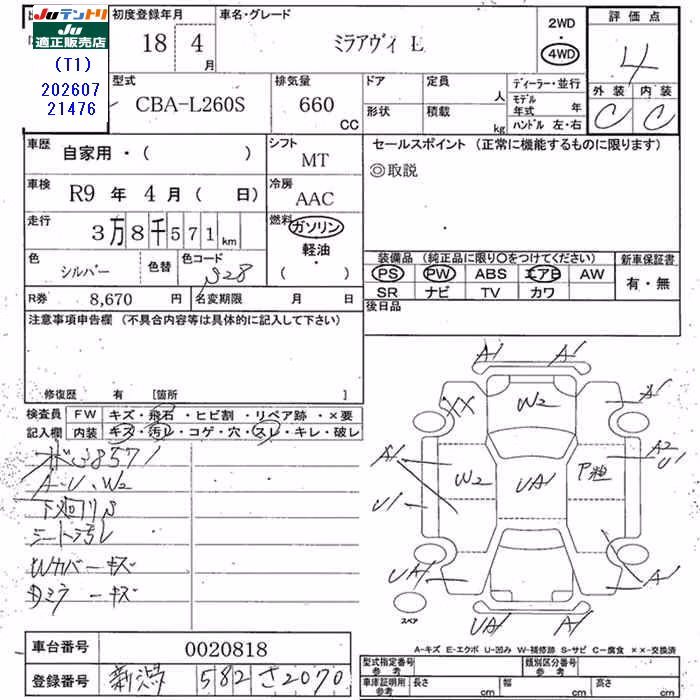 JUテントリ
JU
適正販売店
(T1)
202607
21476
初度登録年月
18 4
月
車名・グレード
ミラアヴィ L
2WD
・
4WD
評価点
4
外装 内装
C C
型式
CBA-L260S
排気量
660
CC
ドア
形状
定員
人
積載
kg
ディーラー・並行
モデル
年式 年
ハンドル 左・右
車歴
自家用・( )
シフト
MT
車検
R9 年 4 月 ( 日)
冷房
AAC
走行
3万8千571km
燃料
ガソリン
軽油
・
( )
色
シルバー
色替
色コード
S28
R券 8,670 円
名変期限 月 日
セールスポイント (正常に機能するものに限ります)
◎取説
装備品 (純正品に限り○をつけてください)
PS PW ABS エアB AW
SR ナビ TV カワ
新車保証書
有・無
後日品
注意事項申告欄 (不具合内容等は具体的に記入して下さい)
修復歴 有 [箇所 ]
検査員
記入欄
FW キズ・飛石・ヒビ割・リペア跡・×要
内装 キズ・汚レ・コゲ・穴・スレ・キレ・破レ
オド38571
A・U・W2
下廻りS
シート汚レ
Wカバーキズ
Dミラーキズ
A1 A1
XX W2 A1
A1 W2 UA1 P粗 A2
U1
U1
UA1 A1
スペア
UA1 A1
A-キズ E-エクボ U-凹み W-補修跡 S-サビ C-腐食 ××-交換済
車台番号 0020818
登録番号 新潟 582 さ2070
型式指定番号
参考
類別区分番号
参考
車庫証明用
参考
長さ cm
幅 cm
高さ cm